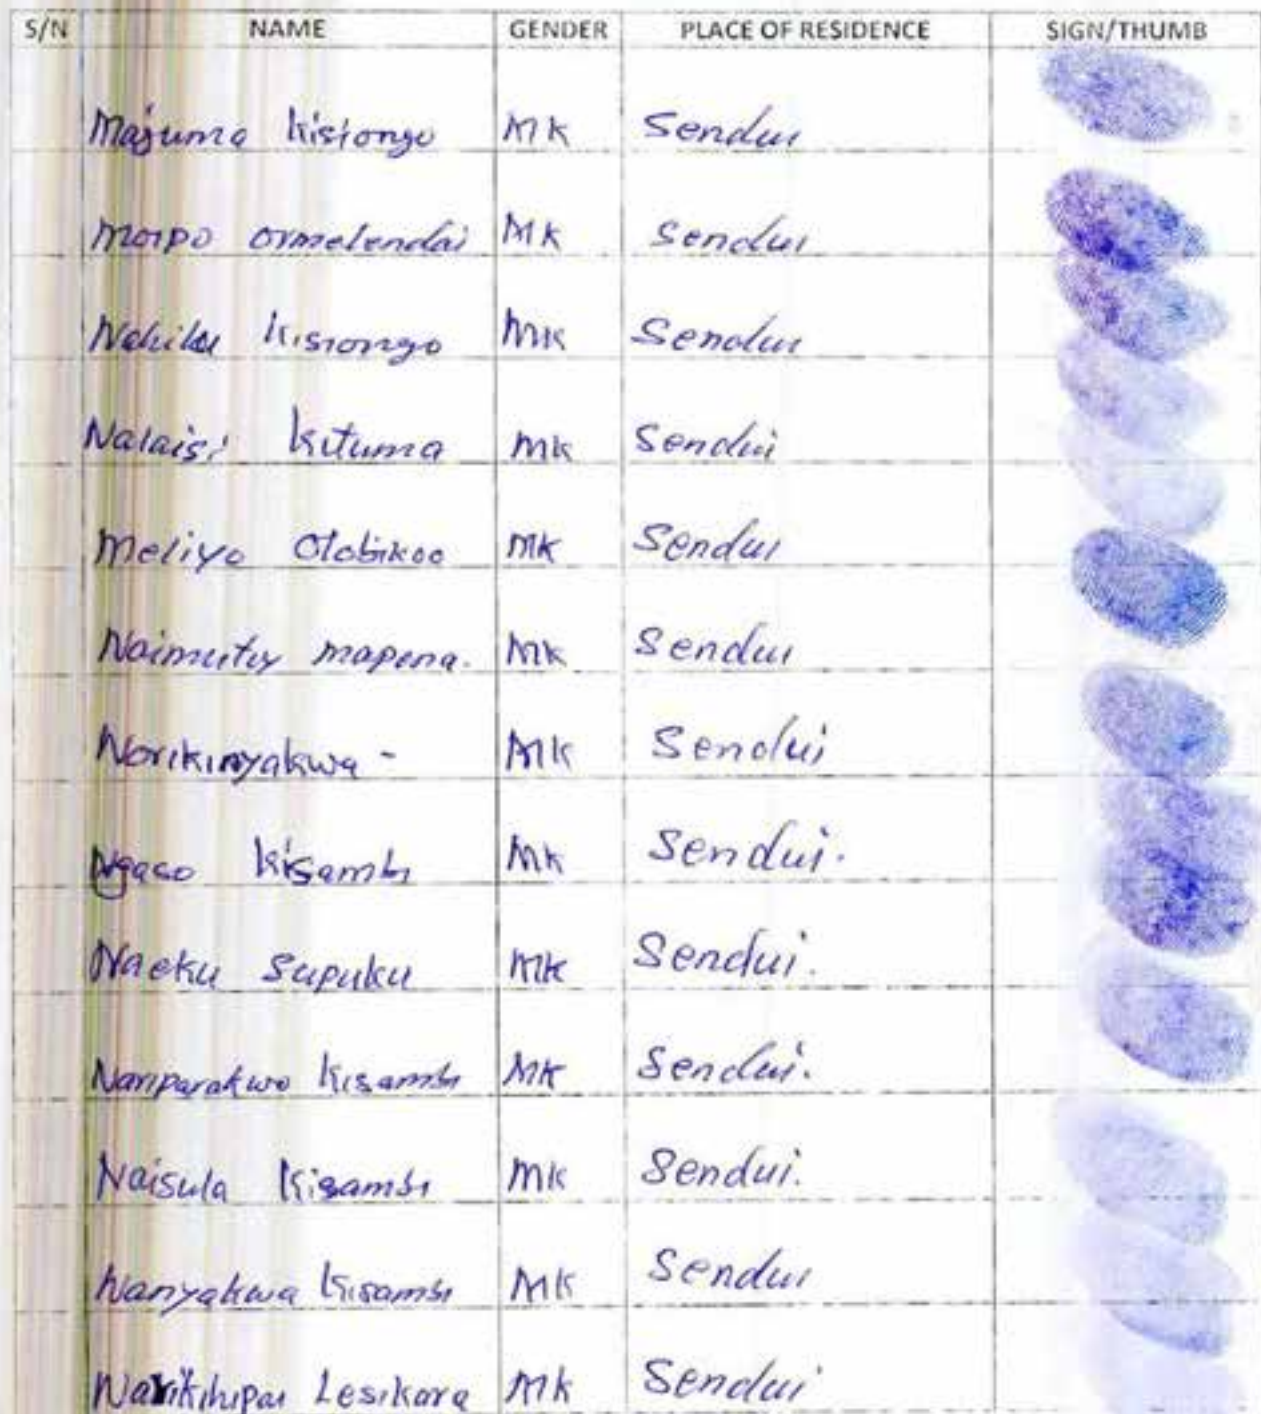 S/N NAME GENDER PLACE OF RESIDENCE SIGN/THUMB
Majuma Kisiongo MK Sendui
Moipo Ormelendai MK Sendui
Kisiongo MK Sendui
Nalaisi Kituma MK Sendui
Meliyo Olobikoo MK Sendui
mapena. MK Sendui
Norikinyakwa - MK Sendui
Ngaso Kisambi MK Sendui.
Naeku Supuku MK Sendui.
Nanparakwo Kisambi MK Sendui.
Naisula Kisambi MK Sendui.
Nanyakwa Kisambi MK Sendui
Lesikara MK Sendui